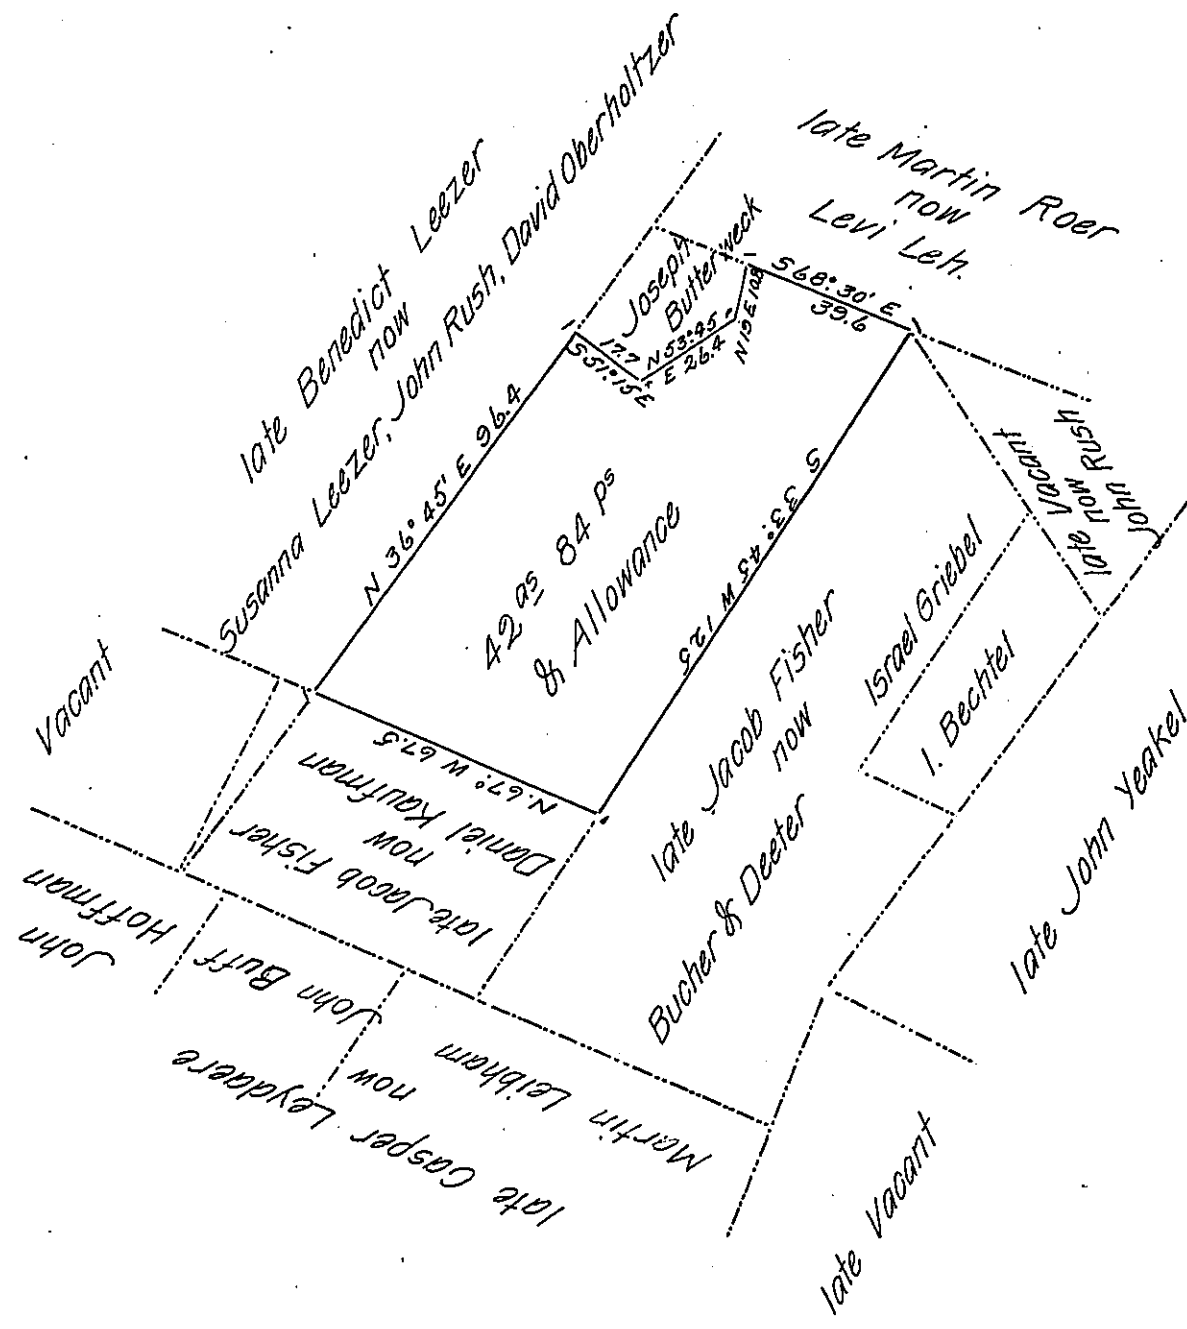 late Benedict Leezer
now
Susanna Leezer, John Rush, David Oberholtzer
late Martin Roer
now
Levi Leh.
Joseph
Butterweck
S 68° 30' E
39.6
17.7
S 51° 15' E
N 53° 45'
E 26.4
N 19 E 10.8
N 36° 45' E 96.4
42 as 84 ps
& Allowance
S 33° 45 W 125
N. 67° W 67.5
late Vacant
now
John Rush
Israel Griebel
I. Bechtel
late Jacob Fisher
now
Bucher & Deeter
late John Yeakel
Vacant
late Jacob Fisher
now
Daniel Kaufman
John
Hoffman
John Buff
late Casper Leydaere
now
Martin Leibham
late Vacant